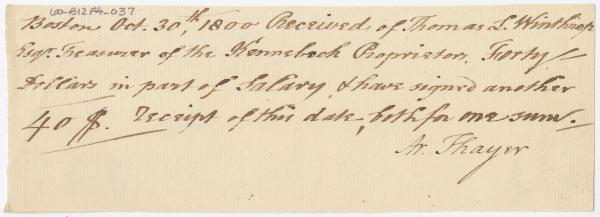 60-B12F4-037
Boston Oct. 30,th 1800 Received of Thomas L. Winthrop
Esqr. Treasurer of the Kennebeck Proprietors, Forty /
Dollars in part of Salary, & have signed another
40 $. Receipt of this date, both for one sum.
Ar. Thayer